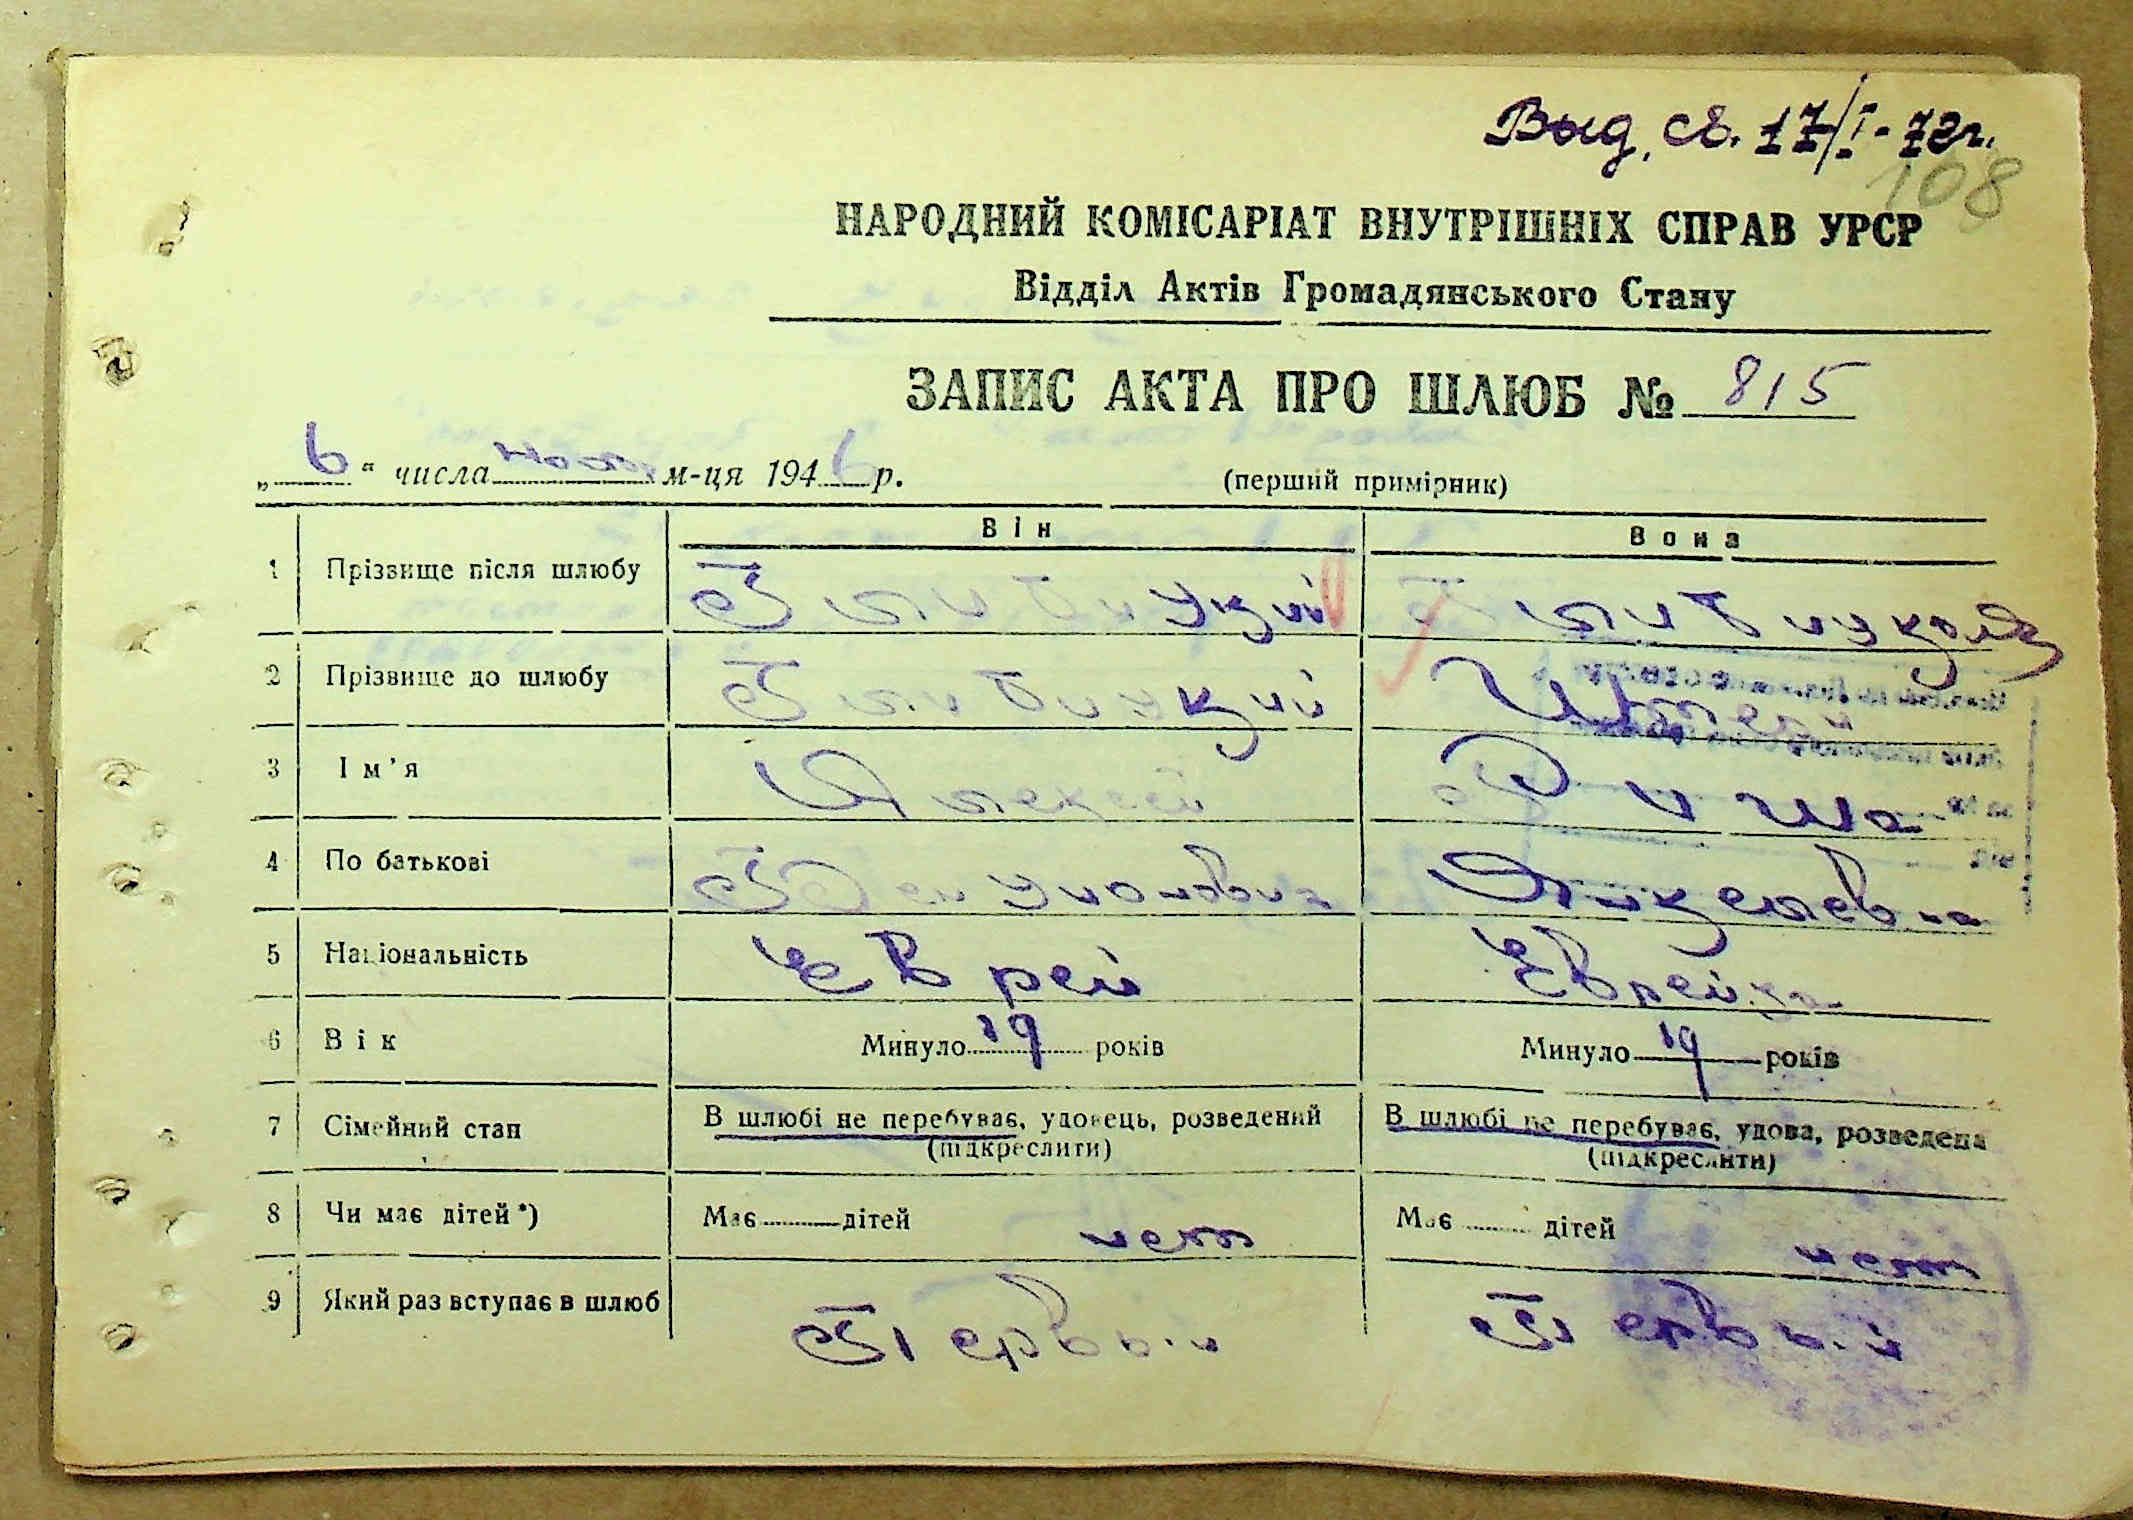 Выд. св. 17/I-72г.
108
НАРОДНИЙ КОМІСАРІАТ ВНУТРІШНІХ СПРАВ УРСР
Відділ Актів Громадянського Стану
ЗАПИС АКТА ПРО ШЛЮБ № 815
„6“ числа м-ця 1946 р.
(перший примірник)
Він Вона
1 Прізвище після шлюбу
2 Прізвище до шлюбу
3 Ім’я Алексей Рима
4 По батькові
5 Національність Еврей Еврейка
6 Вік Минуло 19 років Минуло 19 років
7 Сімейний стан В шлюбі не перебуває, удовець, розведений В шлюбі не перебуває, удова, розведена
(підкреслити) (підкреслити)
8 Чи має дітей*) Має дітей нет Має дітей нет
9 Який раз вступає в шлюб Первый Первый